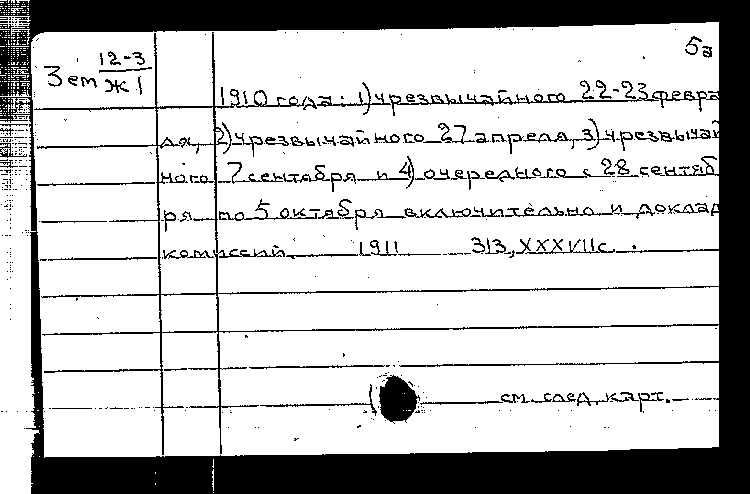 12-3
Зем Ж1
5а
1910 года: 1) чрезвычайного 22-23 февра
ля, 2) чрезвычайного 27 апреля, 3) чрезвычай
ного 7 сентября и 4) очередного с 28 сентяб
ря по 5 октября включительно и доклад
комиссий. 1911 313, XXXVIIс.
см. след. карт.